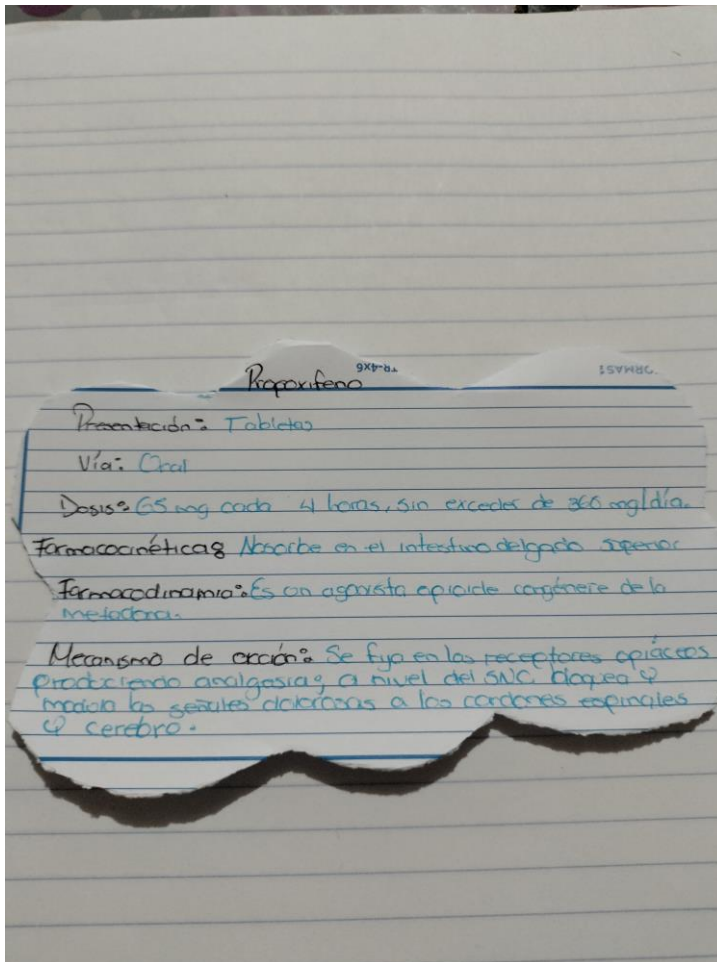 TR-4X6
ORMAS!
Propoxifeno
Presentación: Tabletas
Vía: Oral
Dosis: 65 mg cada 4 horas, sin exceder de 360 mg/día.
Farmacocinética: Absorbe en el intestino delgado superior
Farmacodinamia: Es un agonista opioide congénere de la
metadona.
Mecanismo de acción: Se fija en los receptores opiáceos
produciendo analgasia; a nivel del SNC bloquea y
las señales dolorosas a los cordones espinales
y cerebro.